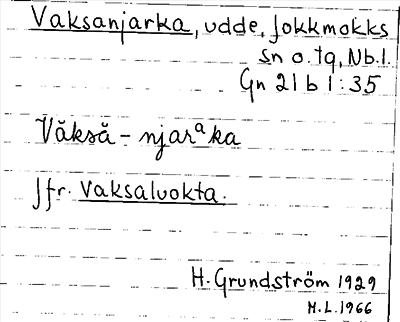 Vaksanjarka, udde, Jokkmokks
sn o. tg, Nb.l.
Gn 21 b 1:35
Văksă-njarᵃka
Jfr. Vaksaluokta.
H. Grundström 1929
H.L. 1966